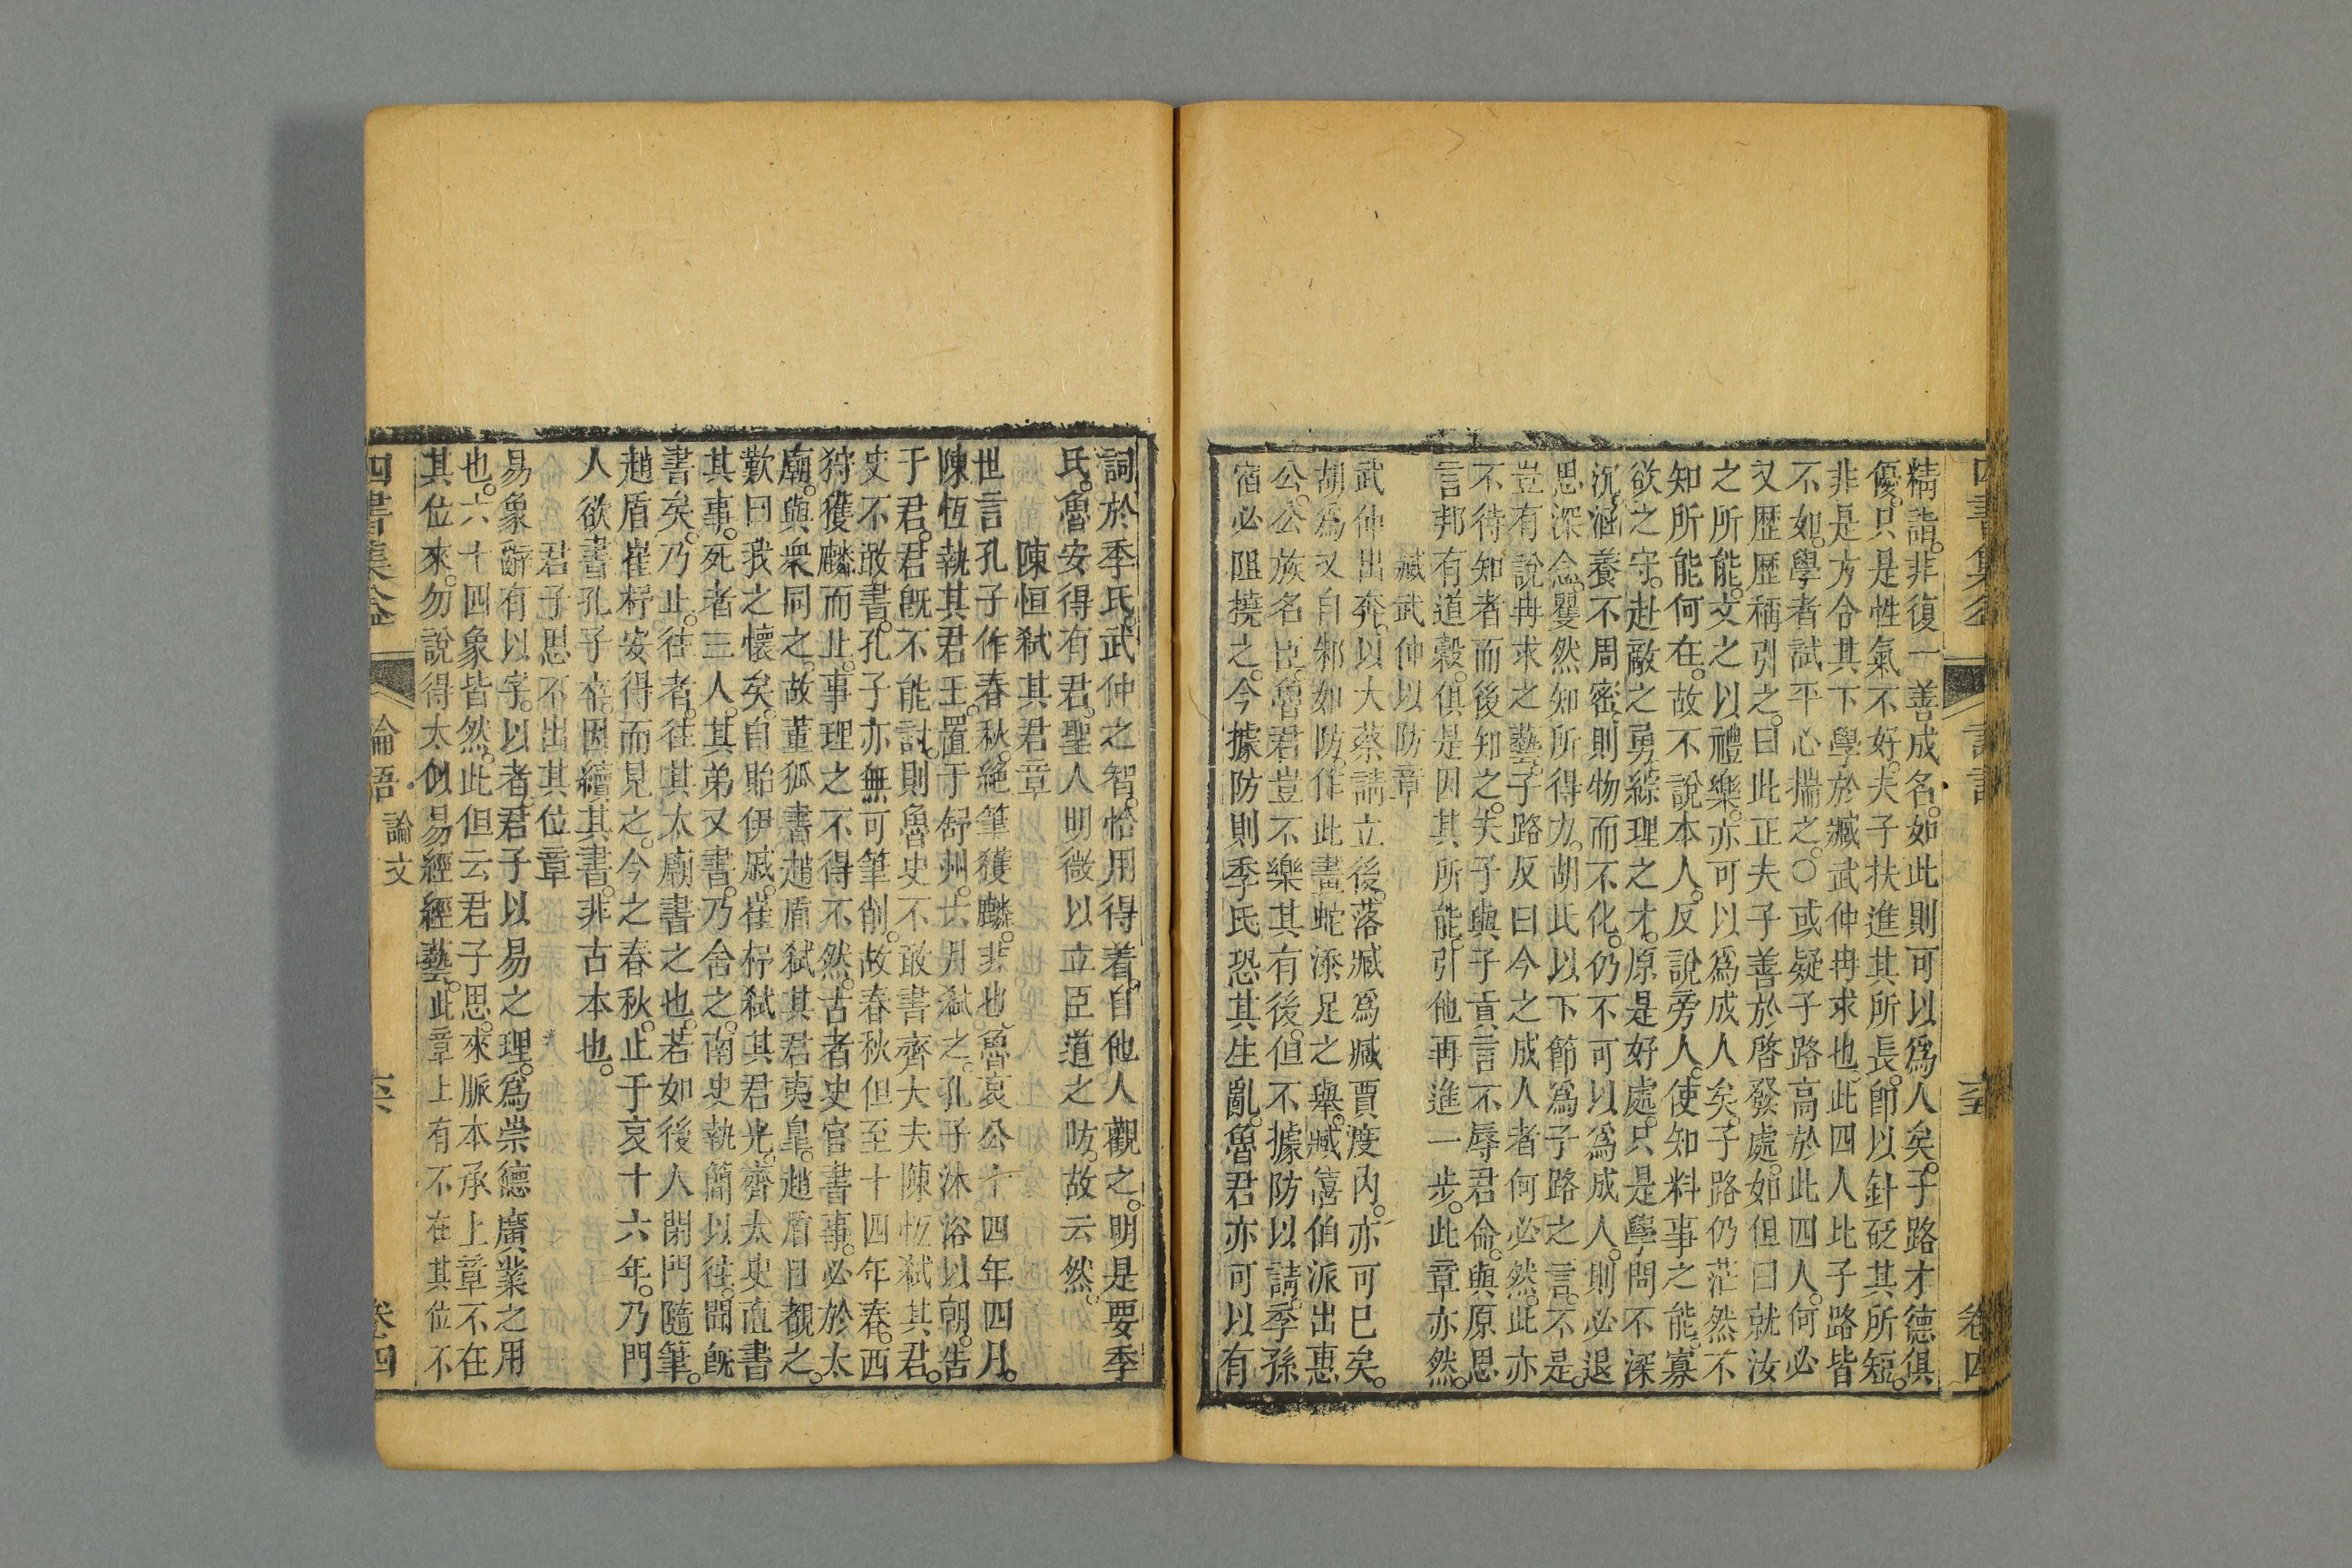 精詣。非復一善成名。如此則可以爲人矣。子路才德俱
優。只是性氣不好。夫子扶進其所長。節以針砭其所短。
非是方合其下學於臧武仲冉求也。此四人比子路皆
不如。學者試平心揣之。○或疑子路高於此四人。何必
又歷歷稱引之。曰此正夫子善於啓發處。如但曰就汝
之所能。文之以禮樂。亦可以爲成人矣。子路仍茫然不
知所能何在。故不說本人。反說旁人。使知料事之能。寡
欲之守。赴敵之勇。綜理之才。原是好處。只是學問不深
沉。涵養不周密。則物而不化。仍不可以爲成人。則必退
思深念。矍然知所得力。胡氏以下節爲子路之言。不是。
豈有說冉求之藝。子路反曰今之成人者何必然。此亦
不待知者而後知之。夫子與子貢言不辱君命。與原思
言邦有道穀。俱是因其所能。引他再進一步。此章亦然。
臧武仲以防章
武仲出奔。以大蔡請立後。落臧爲臧賈度內。亦可已矣。
胡爲又自邾如防。作此畫蛇添足之舉。臧僖伯派出惠
公。公族名臣。魯君豈不樂其有後。但不據防以請。季孫
宿必阻撓之。今據防則季氏恐其生亂。魯君亦可以有
詞於季氏。武仲之智。恰用得着。自他人觀之。明是要季
氏。魯安得有君。聖人明微以立臣道之防。故云然。
陳恒弒其君章
世言孔子作春秋。絕筆獲麟。非也。魯哀公十四年四月。
陳恆執其君壬。置于舒州。六月弒之。孔子沐浴以朝。告
于君。君既不能討。則魯史不敢書齊大夫陳恆弒其君。
史不敢書。孔子亦無可筆削。故春秋但至十四年春。西
狩獲麟而止。事理之不得不然。古者史官書事。必於太
廟。與衆同之。故董狐書趙盾弒其君夷皋。趙盾目覩之。
歎曰我之懷矣。自貽伊戚。崔杼弒其君光。齊太史直書
其事。死者三人。其弟又書。乃舍之。南史執簡以往。聞既
書矣。乃止。往者。往其太廟書之也。若如後人閉門隨筆。
趙盾崔杼安得而見之。今之春秋。止于哀十六年。乃門
人欲書孔子卒。因續其書。非古本也。
君子思不出其位章
易象辭有以字。以者。君子以易之理。爲崇德廣業之用
也。六十四象皆然。此但云君子思。來脈本承上章不在
其位來。勿說得太似易經經藝。此章上有不在其位不
四書集益 論語 論文 卷四